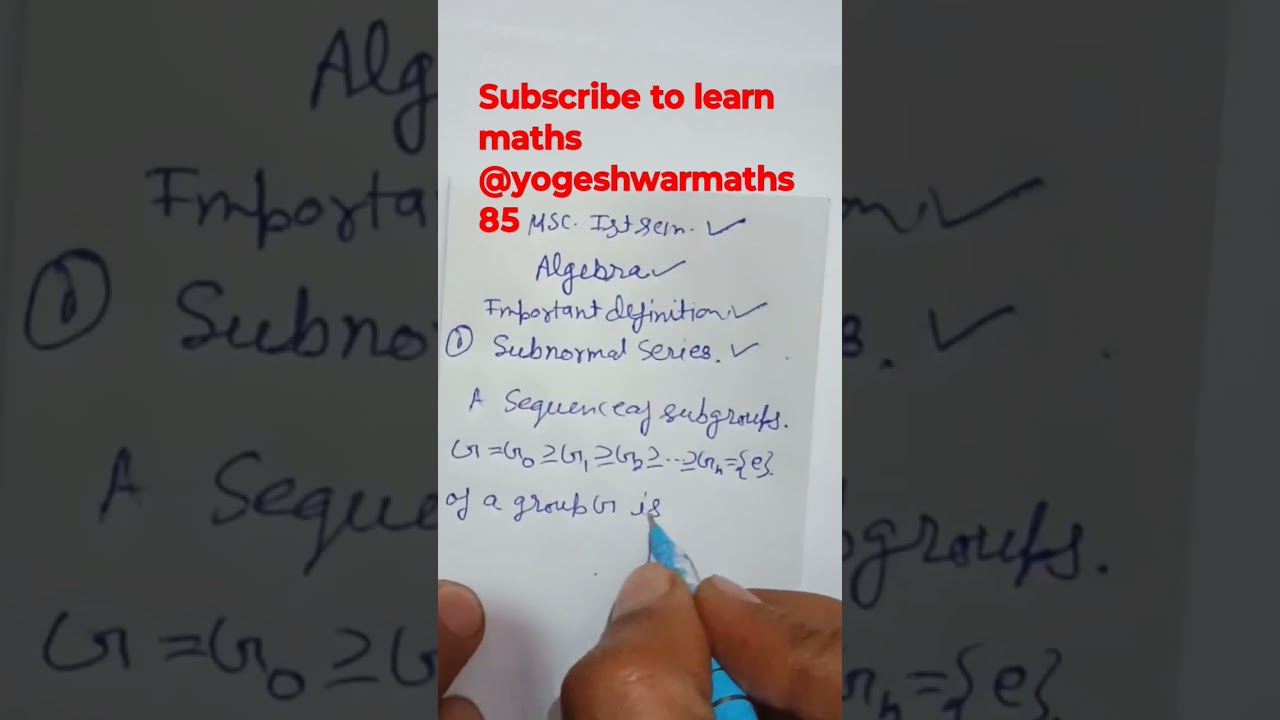 Subscribe to learn
maths
@yogeshwarmaths
85
MSC. Ist sem. ✓
Algebra ✓
Important definition. ✓
① Subnormal Series. ✓
A Sequence of subgroups.
G = G₀ ≥ G₁ ≥ G₂ ≥ ... ≥ Gₙ = {e}.
of a group G is